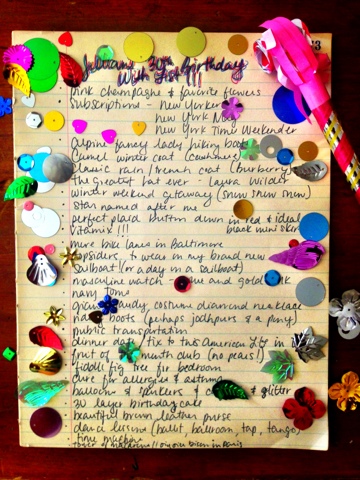 30th Birthday
Wish List!!!
pink champagne & favorite flowers
subscriptions - New Yorker
New York Mag
New York Times Weekender
alpine fancy lady hiking boots
camel winter coat (cashmere)
classic rain/trench coat (burberry)
The Greatest hat ever - Laura Wilde
winter weekend getaway (snow snow snow)
star named after me
perfect plaid button down in red & ideal
vitamix!!! black mini skirt
more bike lanes in Baltimore
topsiders, to wear in my brand new
sailboat (or a day in a sailboat)
masculine watch - and gold
navy Toms
gaudy costume diamond necklace
boots (perhaps jodhpurs & a pony)
public transportation
dinner date / tix to This American Life in
fruit of month club (no pears!)
fiddle fig tree for bedroom
cure for allergies & asthma
balloons & & glitter
30 layer birthday cake
beautiful brown leather purse
dance lessons (ballet, ballroom, tap, tango,
time machine